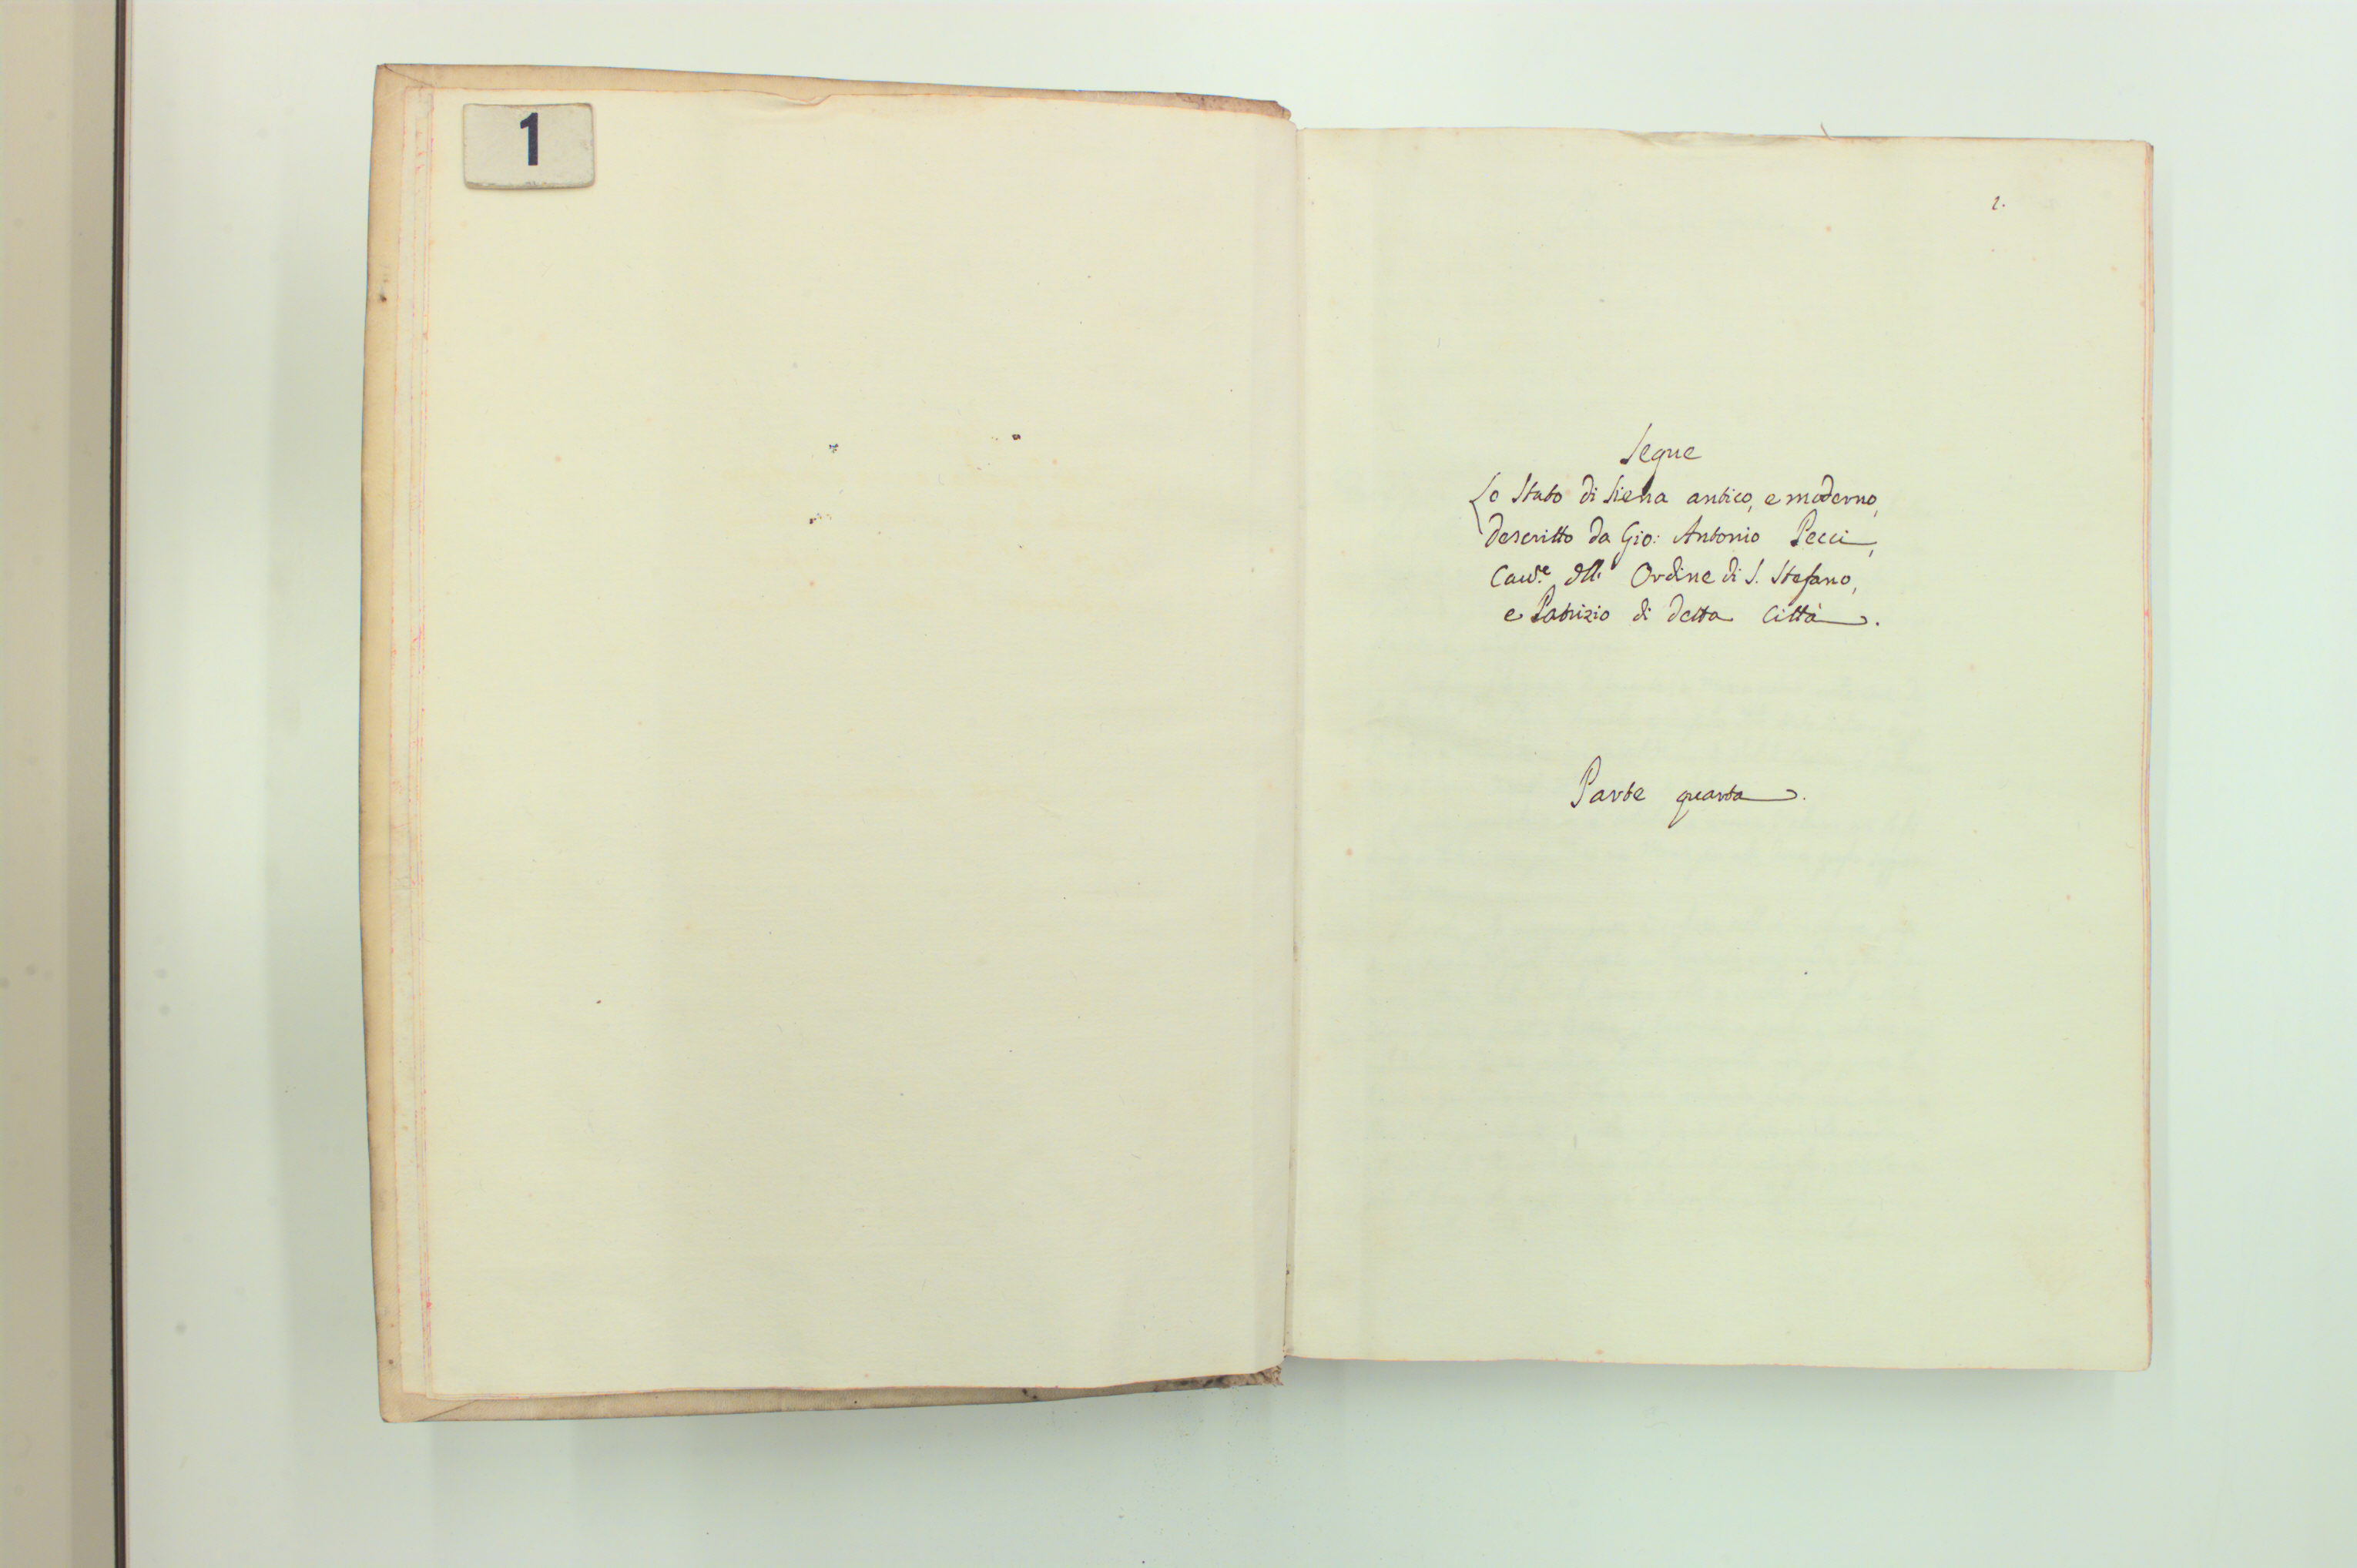 1
1.
Segue
Lo Stato di Siena antico, e moderno,
descritto da Gio: Antonio Pecci,
Cav.e dell' Ordine di S. Stefano,
e Patrizio di detta Città.
Parte quarta.